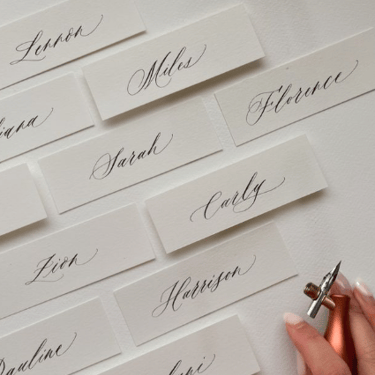 Lennon
Miles
Florence
Sarah
Carly
Zion
Harrison
Pauline